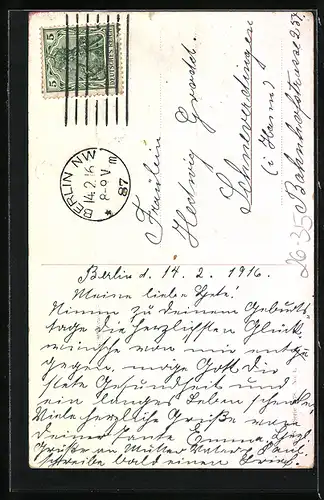 5 5
DEUTSCHES REICH
BERLIN NW
14.2.16
8-9 V
* 87
Fräulein
Hedwig
Schneverdingen
(i Hann)
Bahnhofstrasse 257
Berlin d. 14. 2. 1916.
Meine liebe Hete!
Nimm zu deinem Geburts=
tage die herzlichsten Glück
wünsche von mir entge
gegen, möge Gott Dir
stets Gesundheit und
ein langes Leben schenken.
Viele herzliche Grüße von
deiner Tante Emma
Grüße an Mutter Vater
schreibe bald einen Brief.